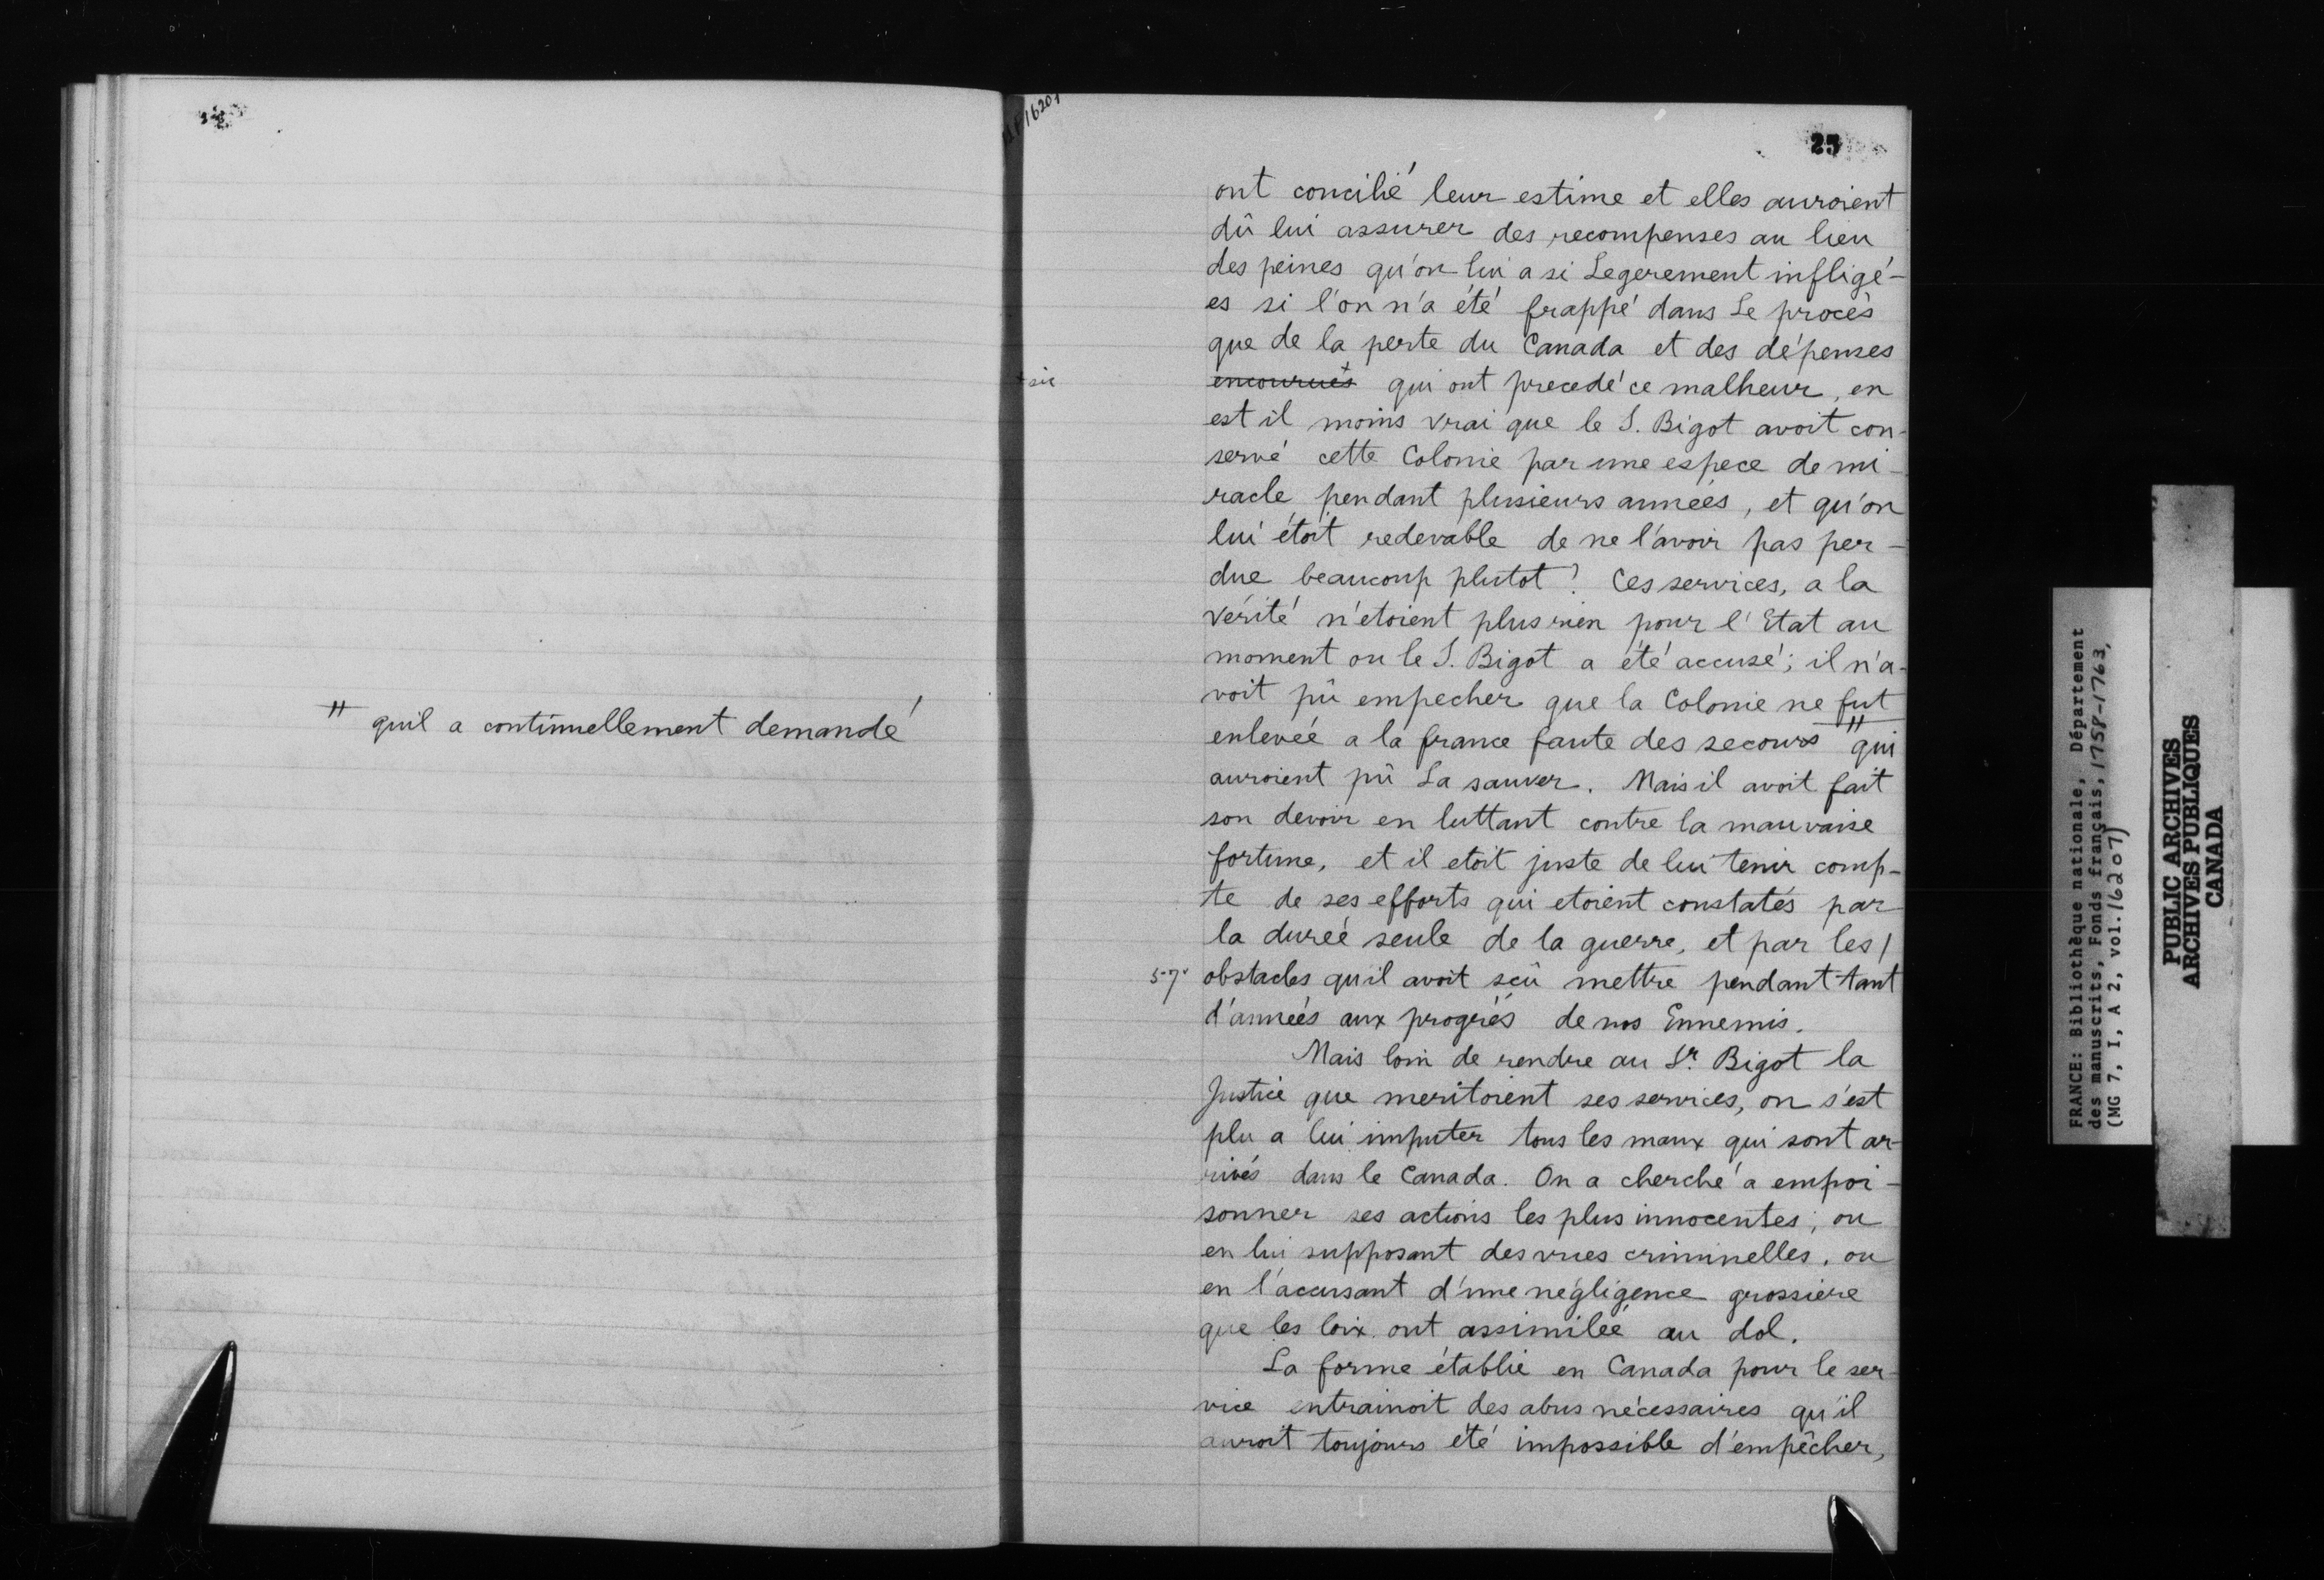 " quil a continuellement demandé
25
ont concilié leur estime et elles auroient
dû lui assurer des recompenses au lieu
des peines qu'on lui a si Legerement infligé-
es si l'on n'a été frappé dans Le procès
que de la perte du Canada et des dépenses
+ sic
encourues + qui ont precedé ce malheur, en
est il moins vrai que le S. Bigot avoit con-
servé cette Colonie par une espece de mi-
racle pendant plusieurs années, et qu'on
lui étoit redevable de ne l'avoir pas per-
due beaucoup plutot? Ces services, a la
vérité n'etoient plus rien pour l'Etat au
moment ou le S. Bigot a été accusé; il n'a-
voit pû empecher que la Colonie ne fut
enlevée a la france faute des secours " qui
auroient pû La sauver. Mais il avoit fait
son devoir en luttant contre la mauvaise
fortune, et il etoit juste de lui tenir comp-
te de ses efforts qui etoient constatés par
la durée seule de la guerre, et par les /
obstacles qu'il avoit sçû mettre pendant tant
d'années aux progrés de nos Ennemis.
Mais loin de rendre au Sr. Bigot la
Justice que meritoient ses services, on s'est
plu a lui imputer tous les maux qui sont ar-
rivés dans le Canada. On a cherché a empoi-
sonner ses actions les plus innocentes; ou
en lui supposant des vues criminelles, ou
en l'accusant d'une négligence grossiere
que les loix ont assimilée au dol.
La forme établie en Canada pour le ser-
vice entrainoit des abus nécessaires qu'il
auroit toujours été impossible d'empêcher,
FRANCE: Bibliothèque nationale, Département
des manuscrits, Fonds français, 1758-1763,
(MG 7, I, A 2, vol. 16207)
PUBLIC ARCHIVES
ARCHIVES PUBLIQUES
CANADA